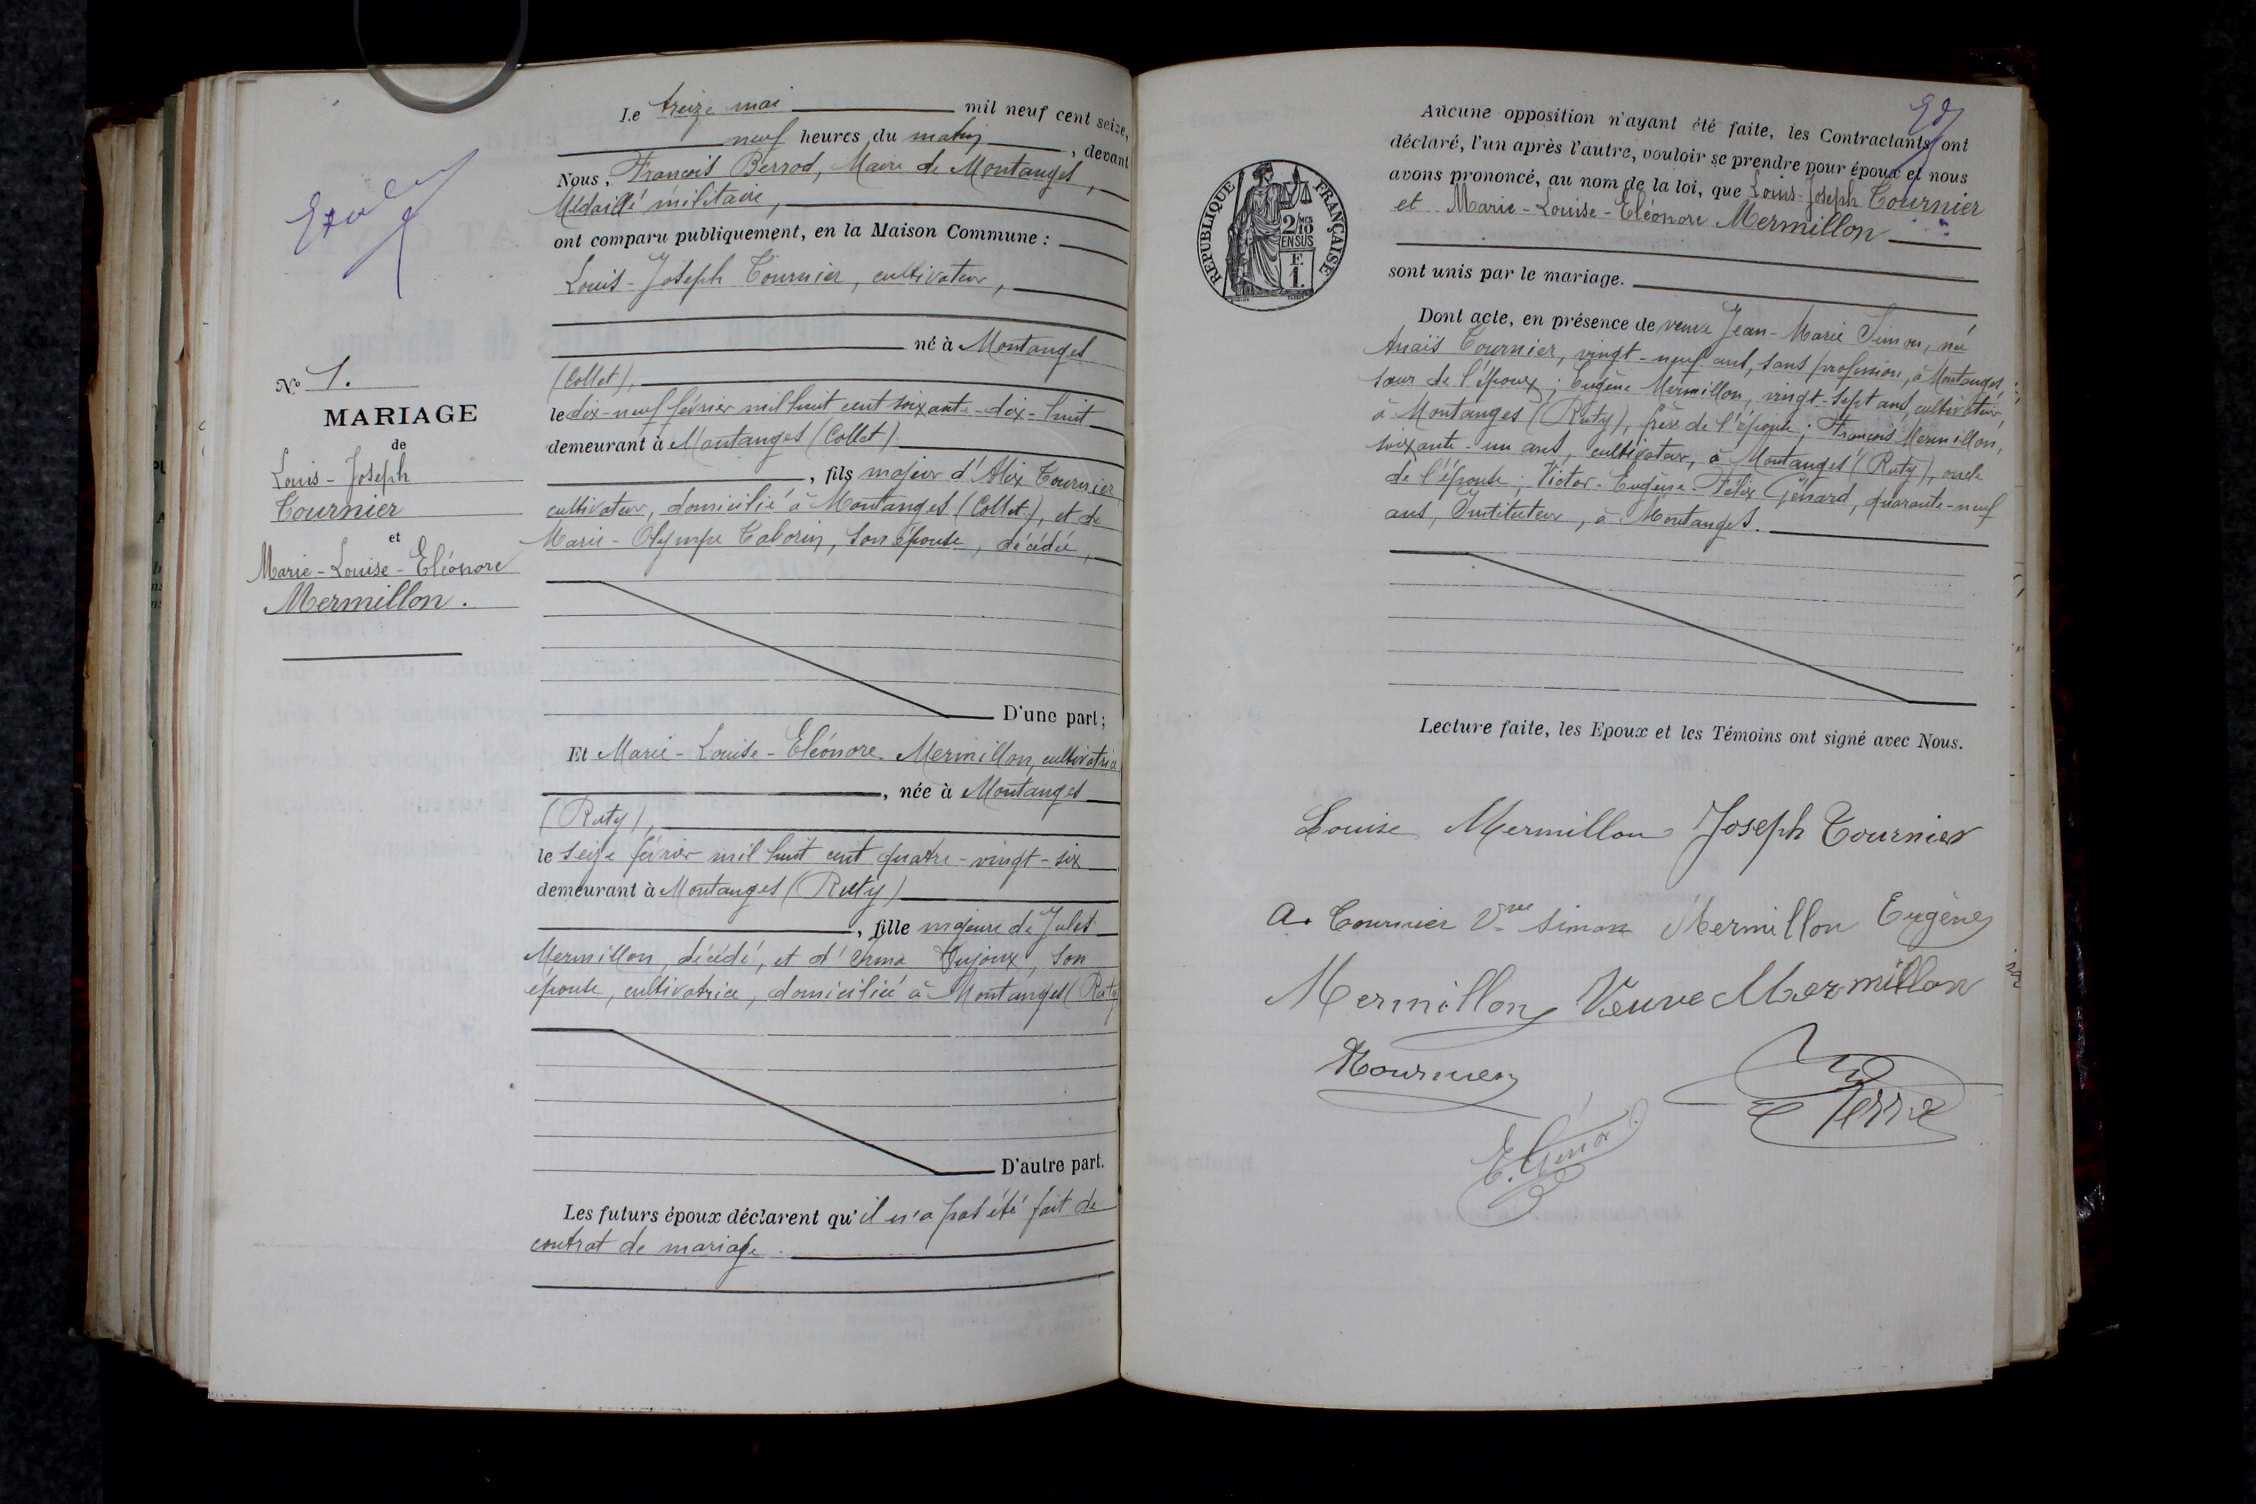 Nº 1.
MARIAGE
de
Louis-Joseph
Tournier
et
Marie-Louise-Eléonore
Mermillon.
Le treize mai mil neuf cent seize,
neuf heures du matin, devant
Nous, François Berrod, Maire de Montanges,
Médaillé militaire,
ont comparu publiquement, en la Maison Commune :
Louis-Joseph Tournier, cultivateur,
né à Montanges
(Collet),
le dix-neuf février mil huit cent soixante-dix-huit
demeurant à Montanges (Collet)
, fils majeur d'Alix Tournier
cultivateur, domicilié à Montanges (Collet), et de
Marie-Olympe Taborin, son épouse, décédée,
D'une part ;
Et Marie-Louise-Eléonore Mermillon, cultivatrice
, née à Montanges
(Ruty),
le seize février mil huit cent quatre-vingt-six
demeurant à Montanges (Ruty)
, fille majeure de Jules
Mermillon, décédé, et d' Dujoux, son
épouse, cultivatrice, domiciliée à Montanges (Ruty
D'autre part.
Les futurs époux déclarent qu'il n'a pas été fait de
contrat de mariage.
Aucune opposition n'ayant été faite, les Contractants ont
déclaré, l'un après l'autre, vouloir se prendre pour époux et nous
avons prononcé, au nom de la loi, que Louis-Joseph Tournier
et Marie-Louise-Eléonore Mermillon
sont unis par le mariage.
RÉPUBLIQUE FRANÇAISE
2/10 MES
EN SUS
F.
1.
Dont acte, en présence de veuve Jean-Marie Simon, née
Anaïs Tournier, vingt-neuf ans, sans profession, à Montanges,
sœur de l'époux ; Eugène Mermillon, vingt-sept ans, cultivateur,
à Montanges (Ruty), frère de l'épouse ; François Mermillon,
soixante-un ans, cultivateur, à Montanges (Ruty), oncle
de l'épouse ; Victor-Eugène-Félix Génard, quarante-neuf
ans, Instituteur, à Montanges.
Lecture faite, les Epoux et les Témoins ont signé avec Nous.
Louise Mermillon Joseph Tournier
A. Tournier Vve Simon Mermillon Eugène
Mermillon Veuve Mermillon
Tournier